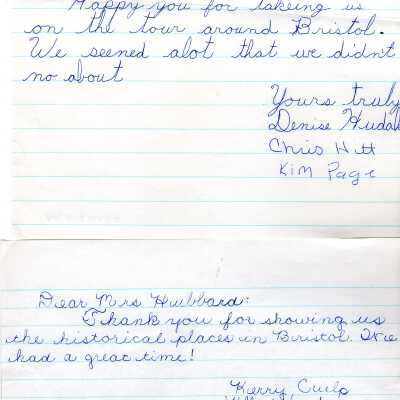 Happy you for takeing us
on the tour around Bristol.
We seened alot that we didn't
no about
Yours truly
Denise
Chris Hitt
Kim Page
Dear Mrs Hubbard:
Thank you for showing us
the historical places in Bristol. We
had a great time!
Kerry